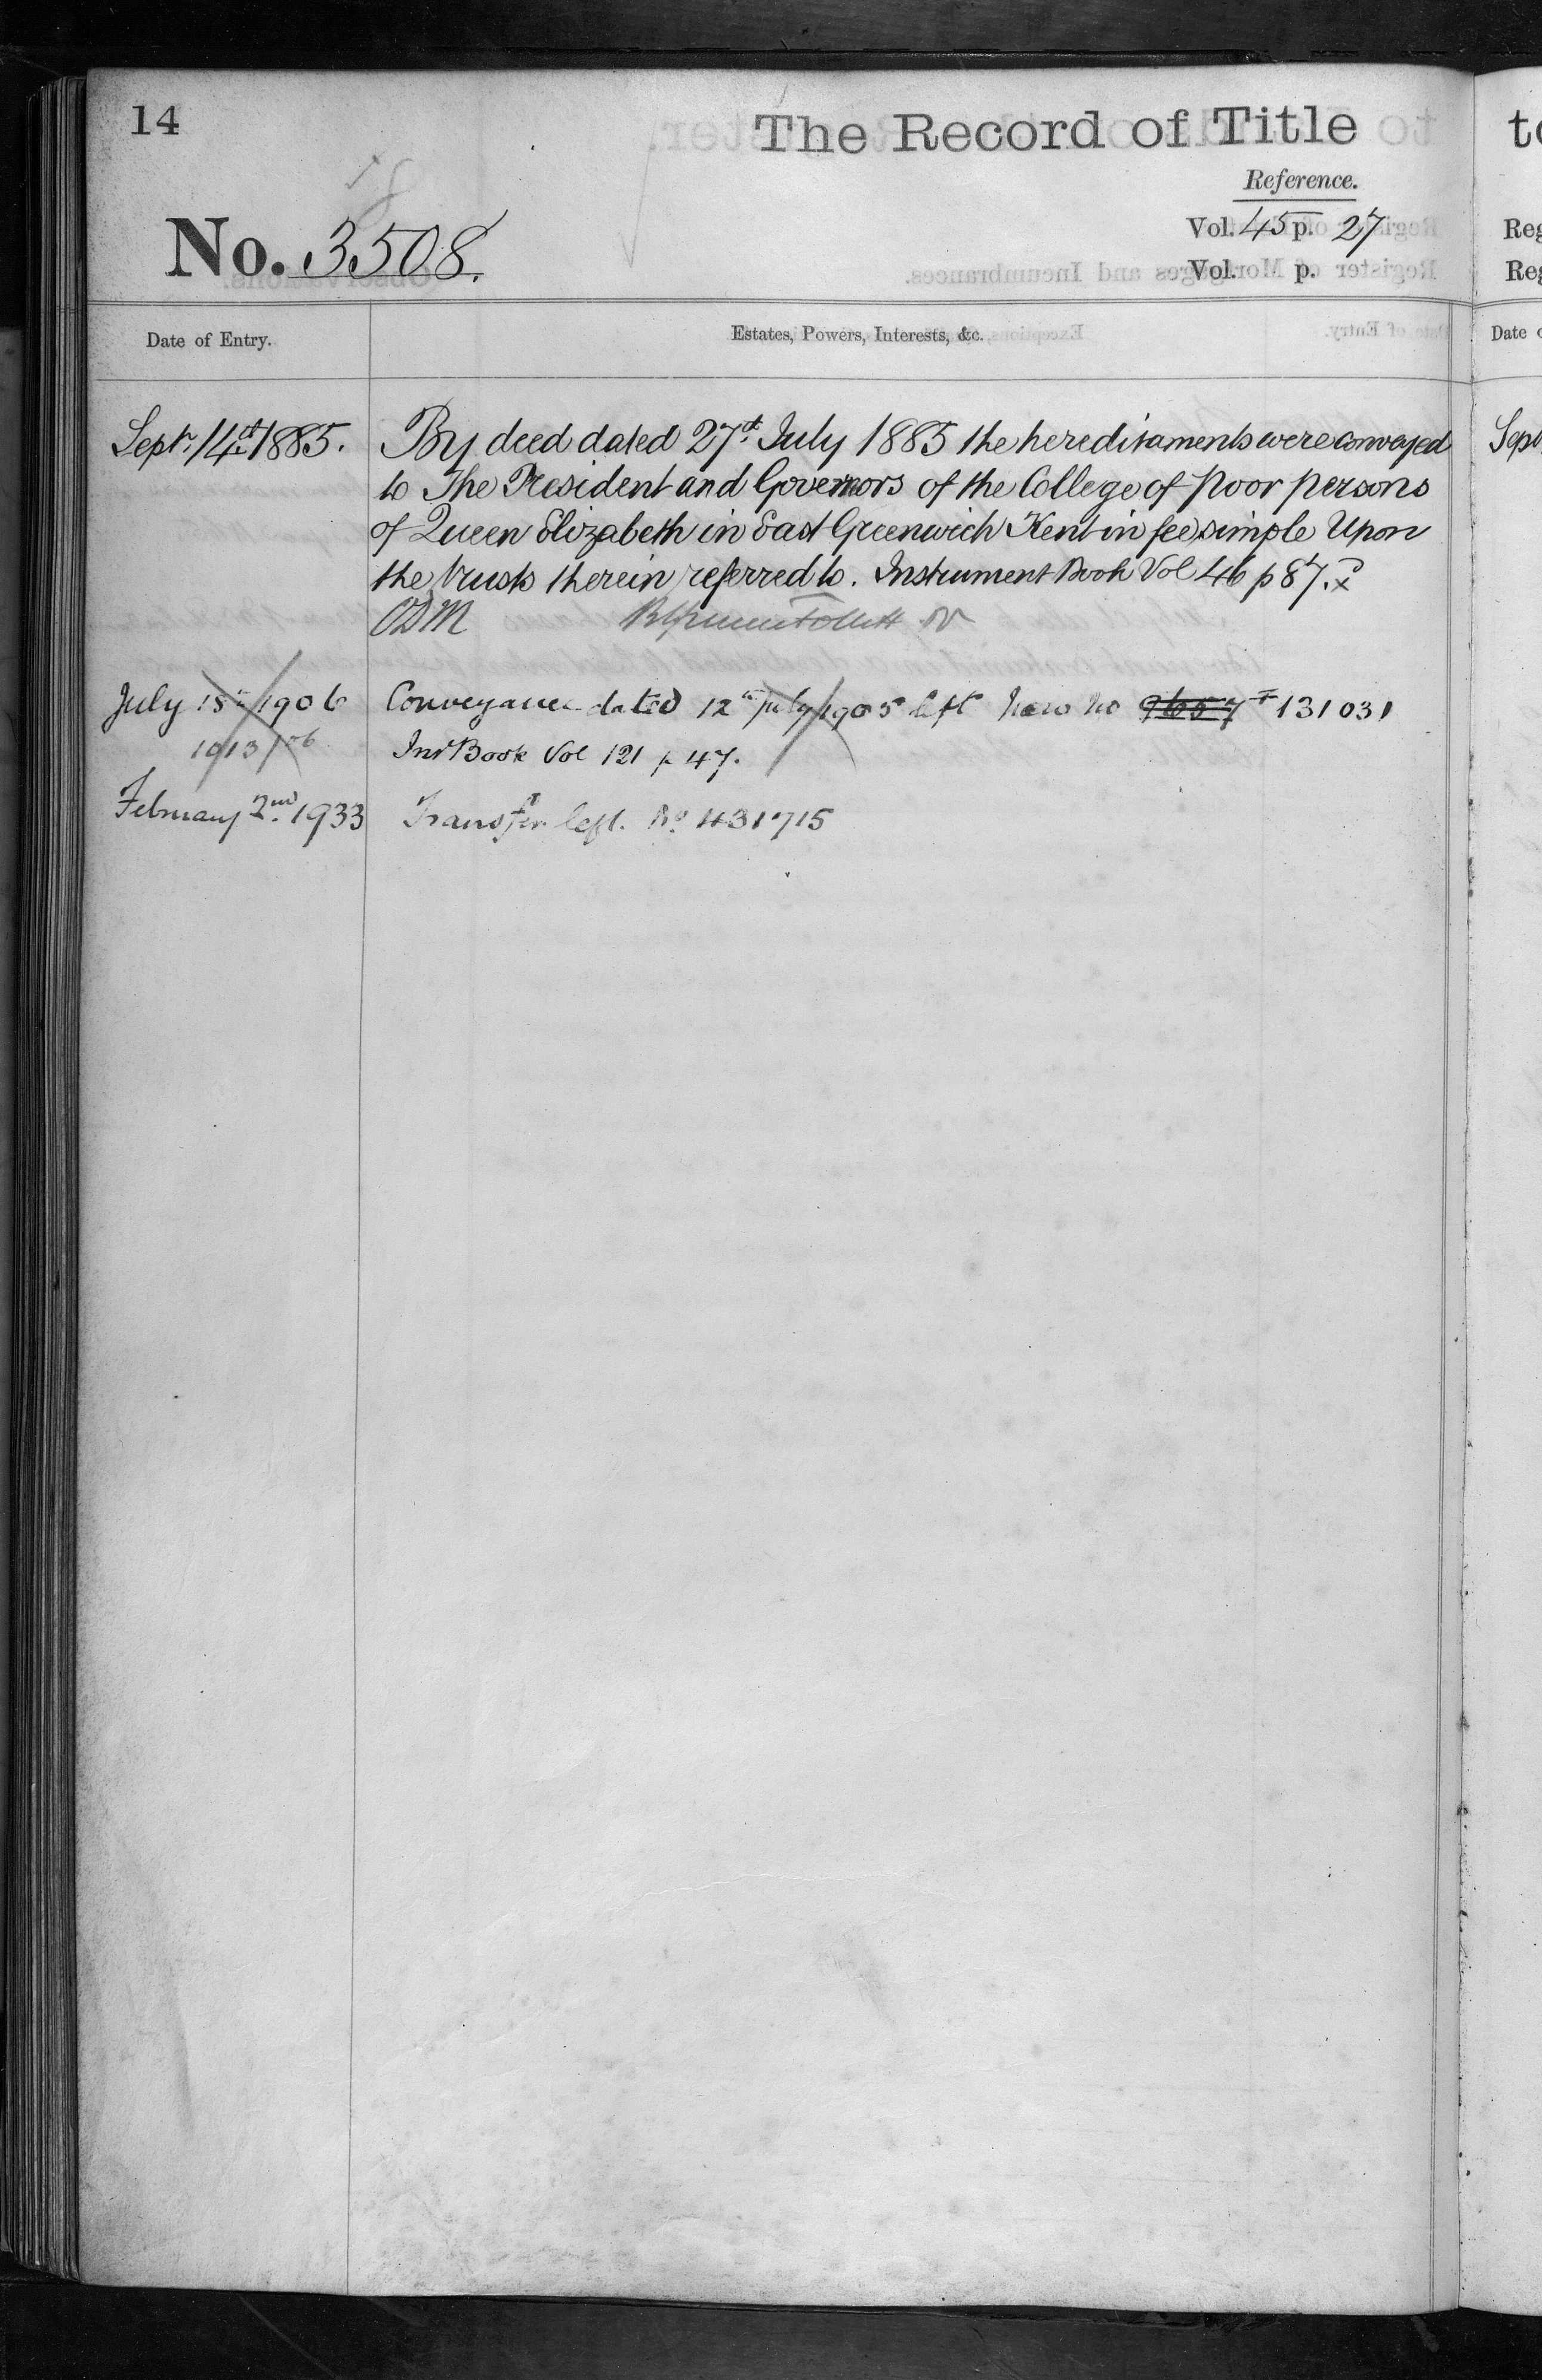 14
The Record of Title
Reference.
No. 3508.
Vol. 45 p. 27
Vol. p.
Date of Entry.
Estates, Powers, Interests, &c.
Sept. 14th 1885.
By deed dated 27th July 1885 the hereditaments were conveyed
to The President and Governors of the College of poor persons
of Queen Elizabeth in East Greenwich Kent in fee simple Upon
the trusts therein referred to. Instrument Book Vol 46 p 87.
ODM
July 18th 1906
Conveyance dated 12th July 1905 left New No 9657 131031
1913/06
Inst Book Vol 121 p 47.
February 2nd 1933
Transfer left. No 431715
to
Reg
Reg
Date o
Sept